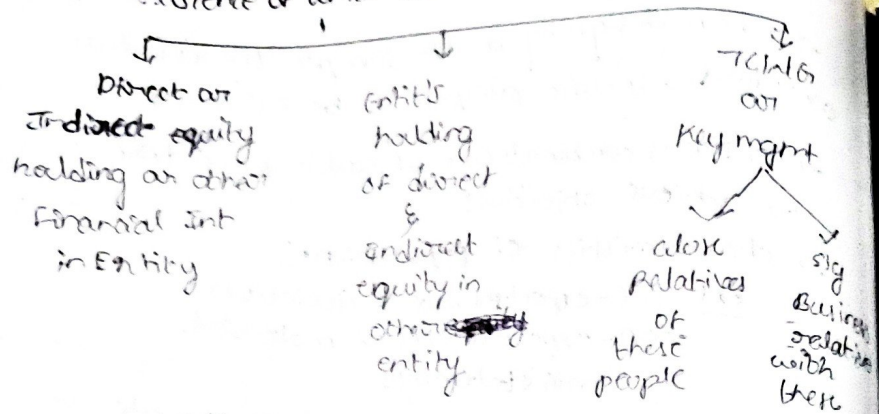 Direct or
Indirect equity
holding or other
Financial Int
in Entity
Entit's
holding
of direct
&
indirect
equity in
other
entity
TCWG
or
Key mgmt
close
Relatives
of
these
people
sig
Business
relation
with
these